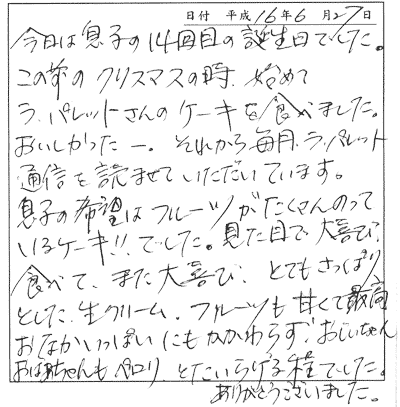 日付 平成16年6月27日
今日は息子の14回目の誕生日でした。
この前のクリスマスの時、始めて
ラ・パレットさんのケーキを食べました。
おいしかったー。それから毎月、ラ・パレット
通信を読ませていただいています。
息子の希望はフルーツがたくさんのって
いるケーキ!!でした。見た目で大喜び、
食べて、また大喜び、とてもさっぱり
とした生クリーム、フルーツも甘くて最高
おなかいっぱいにもかかわらず、おじいちゃん
おばあちゃんもペロリ、とたいらげる程でした。
ありがとうございました。